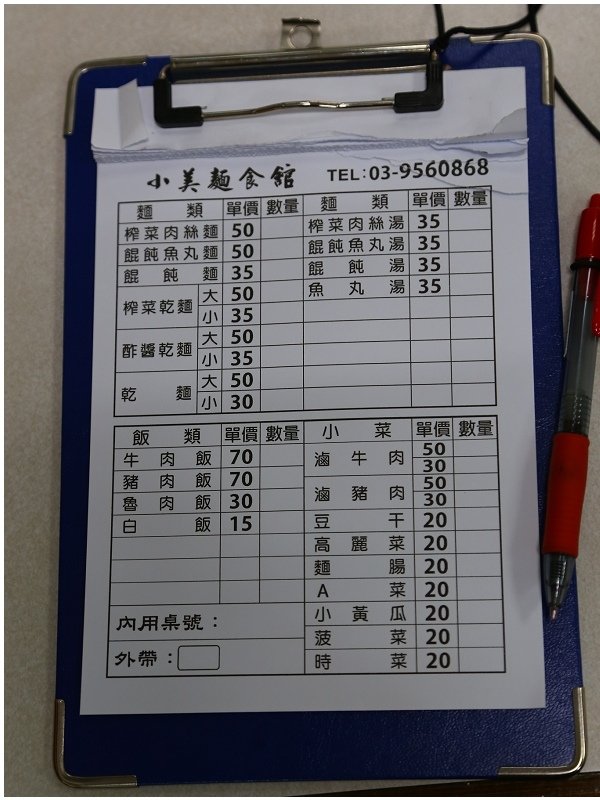 小美麵食館 TEL:03-9560868
麵類 單價 數量 麵類 單價 數量
榨菜肉絲麵 50 榨菜肉絲湯 35
餛飩魚丸麵 50 餛飩魚丸湯 35
餛飩麵 35 餛飩湯 35
榨菜乾麵 大 50 魚丸湯 35
小 35
酢醬乾麵 大 50
小 35
乾麵 大 50
小 30
飯類 單價 數量 小菜 單價 數量
牛肉飯 70 滷牛肉 50
30
豬肉飯 70 滷豬肉 50
30
魯肉飯 30 豆干 20
白飯 15 高麗菜 20
麵腸 20
A菜 20
小黃瓜 20
菠菜 20
時菜 20
內用桌號：
外帶：